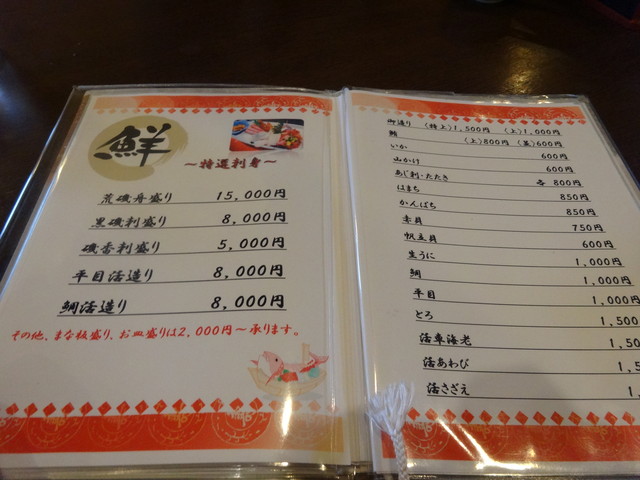 鮮
～特選刺身～
荒磯舟盛り 15,000円
黒磯刺盛り 8,000円
磯香刺盛り 5,000円
平目活造り 8,000円
鯛活造り 8,000円
その他、まな板盛り、お皿盛りは2,000円～承ります。
御造り (特上)1,500円 (上)1,000円
鮪 (上)800円 (並)600円
いか 600円
山かけ 600円
あじ刺・たたき 各 800円
はまち 850円
かんぱち 850円
赤貝 750円
帆立貝 600円
生うに 1,000円
鯛 1,000円
平目 1,000円
とろ 1,500
活車海老 1,50
活あわび 1,5
活さざえ 1,